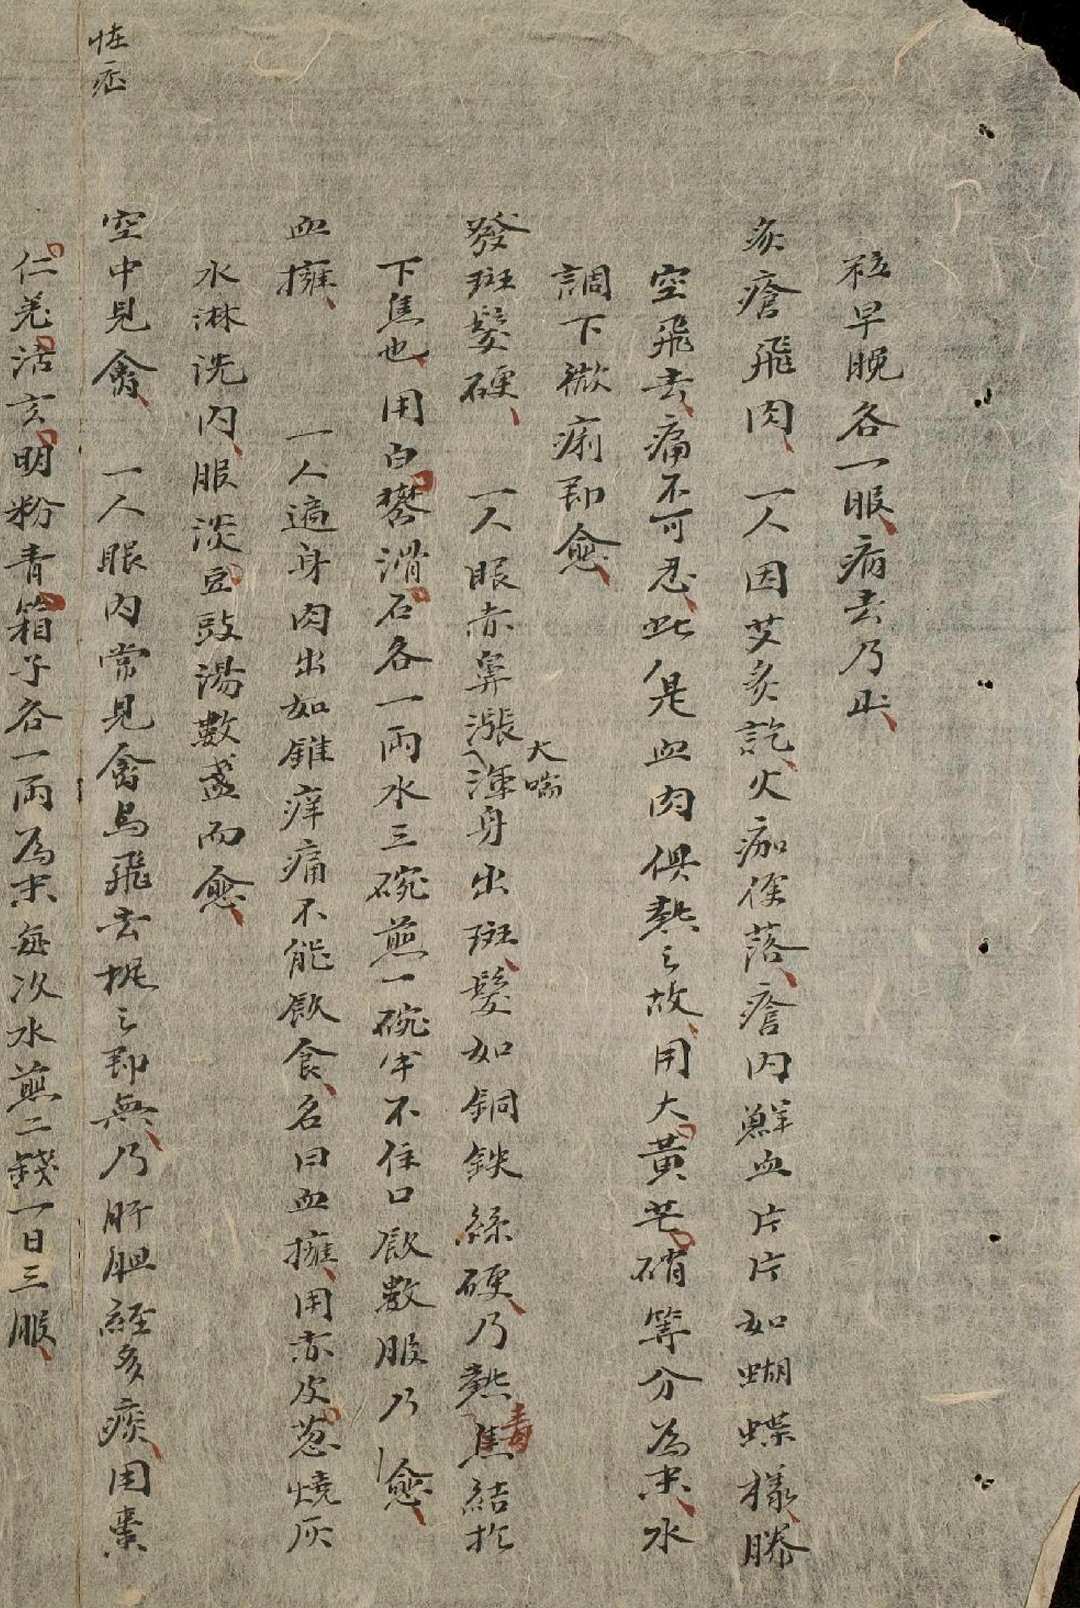 粒早晚各一服病去乃止
灸瘡飛肉 一人因艾灸訖火痂後落瘡內鮮血片片如蝴蝶樣騰
空飛去痛不可忍此是血肉俱熱之故用大黃芒硝等分為末水
調下微痢即愈
發斑髮硬 一人眼赤鼻漲大喘渾身出斑髮如銅鉄絲硬乃熱毒結於
下焦也用白礬滑石各一兩水三碗煎一碗半不住口飲數服乃愈
血擁 一人遍身肉出如錐痒痛不能飲食名曰血擁用赤皮葱燒灰
水淋洗內服淡豆豉湯數盞而愈
怪症
空中見禽 一人眼內常見禽鳥飛去捉之即無乃肝胆経多痰用棗
仁羌活玄明粉青箱子各一兩為末每次水煎二錢一日三服